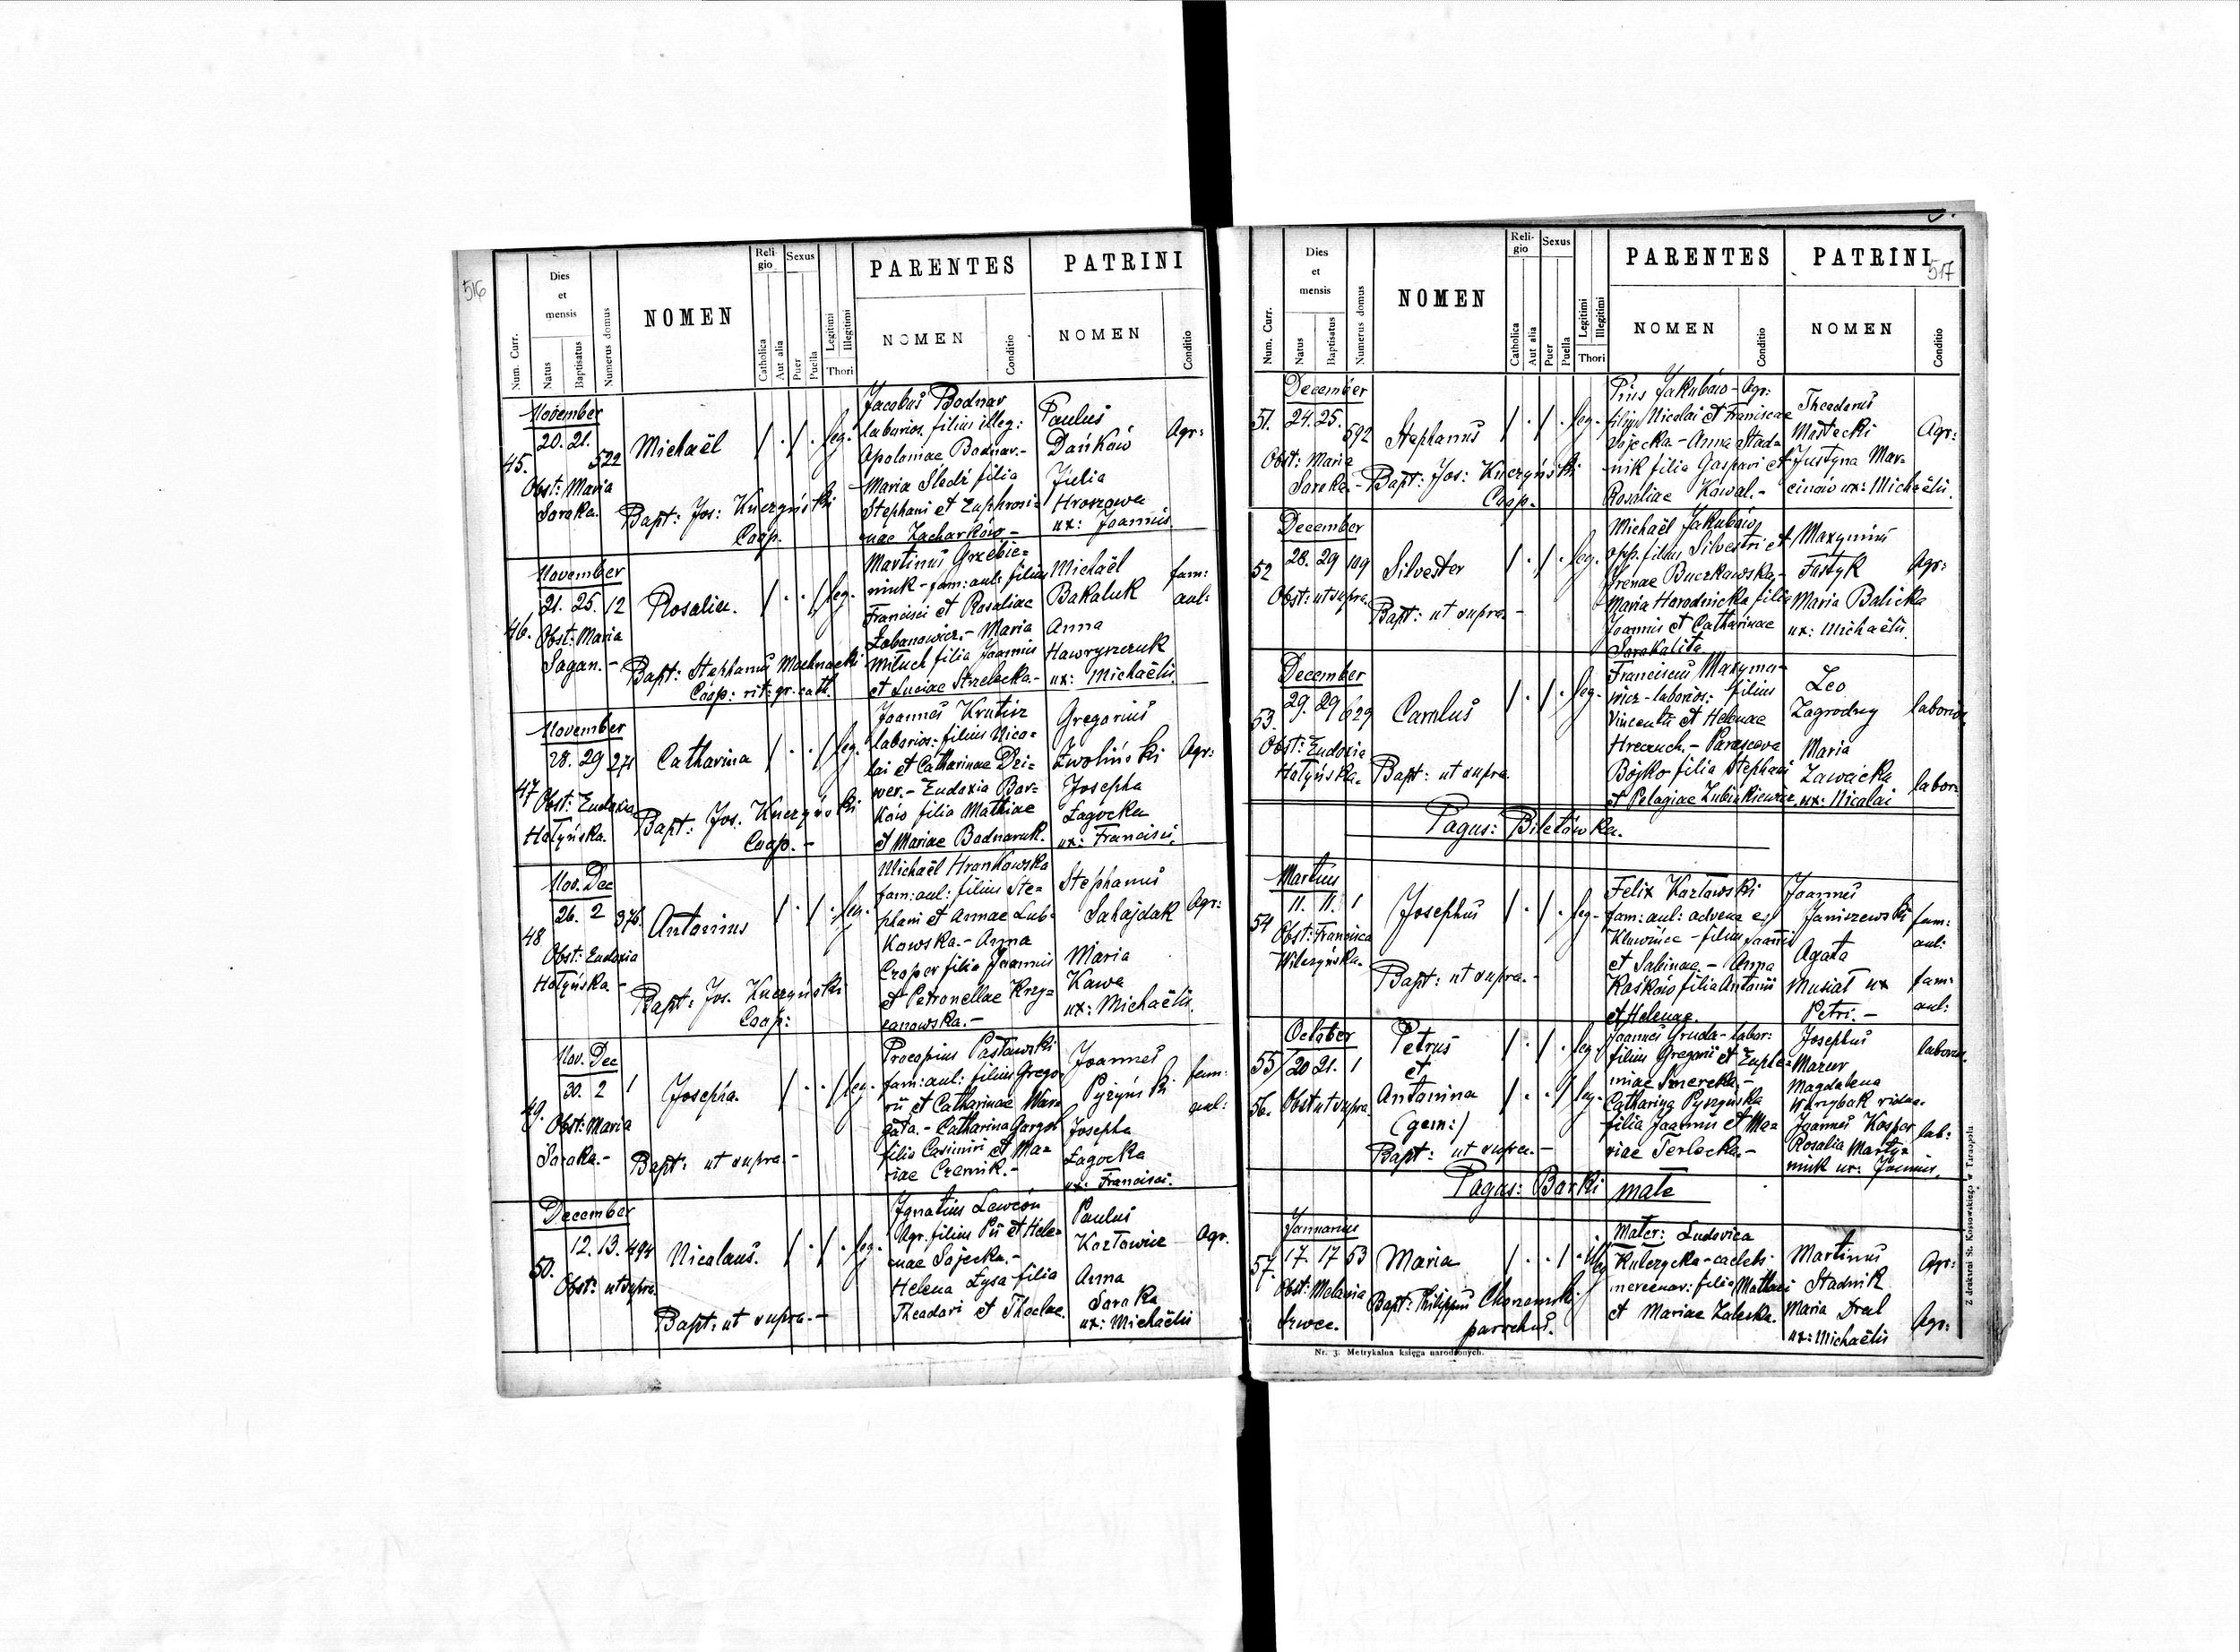 516
Num. Curr.
Dies et mensis
Natus
Baptisatus
Numerus domus
NOMEN
Religio
Catholica
Aut alia
Sexus
Puer
Puella
Legitimi
Illegitimi
Thori
PARENTES
NOMEN
Conditio
PATRINI
NOMEN
Conditio
November
45. 20. 21. 522
Obst: Maria
Soroka.
Michaël
Bapt: Jos: Kuczyński
Coop.
/ . / . leg.
Jacobus Bodnar
laborios. filius illeg:
Apoloniae Bodnar.-
Maria Śledź filia
Stephani et Euphrosi=
nae Zacharków -
Paulus
Dańków
Julia
Hroszowa
ux: Joannis
Agr:
November
46. 21. 25. 12
Obst: Maria
Sagan. -
Rosalia.
Bapt: Stephanus Machnacki
Coop: rit: gr. cath.
/ . . / leg.
Martinus Grzebie=
niuk - fam: aul: filius
Francisci et Rosaliae
Łobanowicz. - Maria
Mituch filia Joannis
et Luciae Strzelecka. -
Michaël
Bakaluk
Anna
Hawryszczuk
ux: Michaëlis
fam:
aul:
November
47 28. 29 271
Obst: Eudoxia
Hołyńska.
Catharina
Bapt: Jos. Kuczyński
Coop. -
/ . . / leg.
Joannes Krutisz
laborios: filius Nico=
lai et Catharinae Dzi=
wer. - Eudoxia Bar=
ków filia Mathiae
et Mariae Bodnaruk.
Gregorius
Zwoliński
Josepha
Łagocka
ux: Francisci.
Agr:
Nov. Dec
48 26. 2 376.
Obst: Eudoxia
Hołyńska. -
Antonius
Bapt: Jos. Kuczyński
Coop:
/ . / . leg.
Michaël Hrankowska
fam: aul: filius Ste=
phani et Annae Lub=
kowska. - Anna
Czoper filia Joannis
et Petronellae Krzy=
zanowska. -
Stephanus
Sahajdak
Maria
Kawa
ux: Michaëlis.
Agr:
Nov. Dec
49. 30. 2 1
Obst: Maria
Soroka. -
Josepha.
Bapt: ut supra -
/ . . / leg.
Procopius Pasławski
fam: aul: filius Grego=
rii et Catharinae War=
gata. - Catharina Gargol
filia Casimiri et Ma=
riae Czarnik. -
Joannes
Pyżyński
Josepha
Łagocka
ux: Francisci.
fam:
aul:
December
50. 12. 13. 494
Obst: ut supra
Nicolaus.
Bapt: ut supra. -
/ . / . leg.
Ignatius Lewców
Agr. filius Pii et Hele=
nae Sajecka. -
Helena Łysa filia
Theodori et Theclae.
Paulus
Kozłowicz
Anna
Soroka
ux: Michaëlis
Agr.
517
Num. Curr.
Dies et mensis
Natus
Baptisatus
Numerus domus
NOMEN
Religio
Catholica
Aut alia
Sexus
Puer
Puella
Legitimi
Illegitimi
Thori
PARENTES
NOMEN
Conditio
PATRINI
NOMEN
Conditio
December
51. 24. 25. 592
Obst: Maria
Soroka. -
Stephanus
Bapt: Jos: Kuczyński
Coop.
/ . / . leg.
Pius Jakubów - Agr:
filius Nicolai et Franciscae
Sajecka - Anna Stad=
nik filia Gaspari et
Rosaliae Kowal. -
Theodorus
Martecki
Justyna Mar=
cinów ux: Michaëlis
Agr:
December
52 28. 29 109
Obst: ut supra.
Silvester
Bapt: ut supra. -
/ . / . leg.
Michaël Jakubów
opp. filius Silvestri et
Irenae Buczkowska, -
Maria Horodnicka filia
Joannis et Catharinae
Sorokalita
Maxymius
Fustyk
Maria Balicka
ux: Michaëlis.
Agr:
December
53. 29. 29 629
Obst: Eudoxia
Hołyńska.
Carolus
Bapt: ut supra
/ . / . leg.
Franciscus Maxymo=
wicz - laborios: filius
Vincentii et Helenae
Hreczuch. - Parasceva
Bojko filia Stephani
et Pelagiae Zubinkiewicz
Leo
Zagrodny
Maria
Zawadcka
ux: Nicolai
laborios.
labor:
Pagus: Biletówka.
Martius
54 11. 11. 1
Obst: Francisca
Wilczyńska.
Josephus
Bapt: ut supra. -
/ . / . leg.
Felix Kozłowski
fam: aul: advena ex
Kluwińce - filius Joannis
et Sabinae. - Anna
Kaśków filia Antonii
et Helenae.
Joannes
Janiszewski
Agata
Musiał ux
Petri. -
fam:
aul:
fam:
aul:
October
55/ 20 21. 1
56. Obst ut supra
Petrus
et
Antonina
(gem:)
Bapt: ut supra. -
/ . / . leg.
/ . . / leg.
Joannes Gruda - labor:
filius Gregorii et Euphe=
miae Smereka. -
Catharina Pyzyńska
filia Joannis et Ma=
riae Terlecka. -
Josephus
Mazur
Magdalena
Warzybok vidua.
Joannes Kasper
Rosalia Marty=
niuk ux: Joannis.
laborios.
lab:
Pagus: Borki małe
Januarius
57. 17. 17 53
Obst: Melania
Szwec.
Maria
Bapt: Philippus Chorzemski
parochus.
/ . . / . illeg
Mater: Ludovica
Kulczycka - caelebs
mercenar: filia Mathaei
et Mariae Zaleska.
Martinus
Stadnik
Maria Dral
ux: Michaëlis
Agr:
Agr:
Nr. 3. Metrykalna księga narodzonych.
Z drukarni St. Kossowskiego w Tarnopolu.